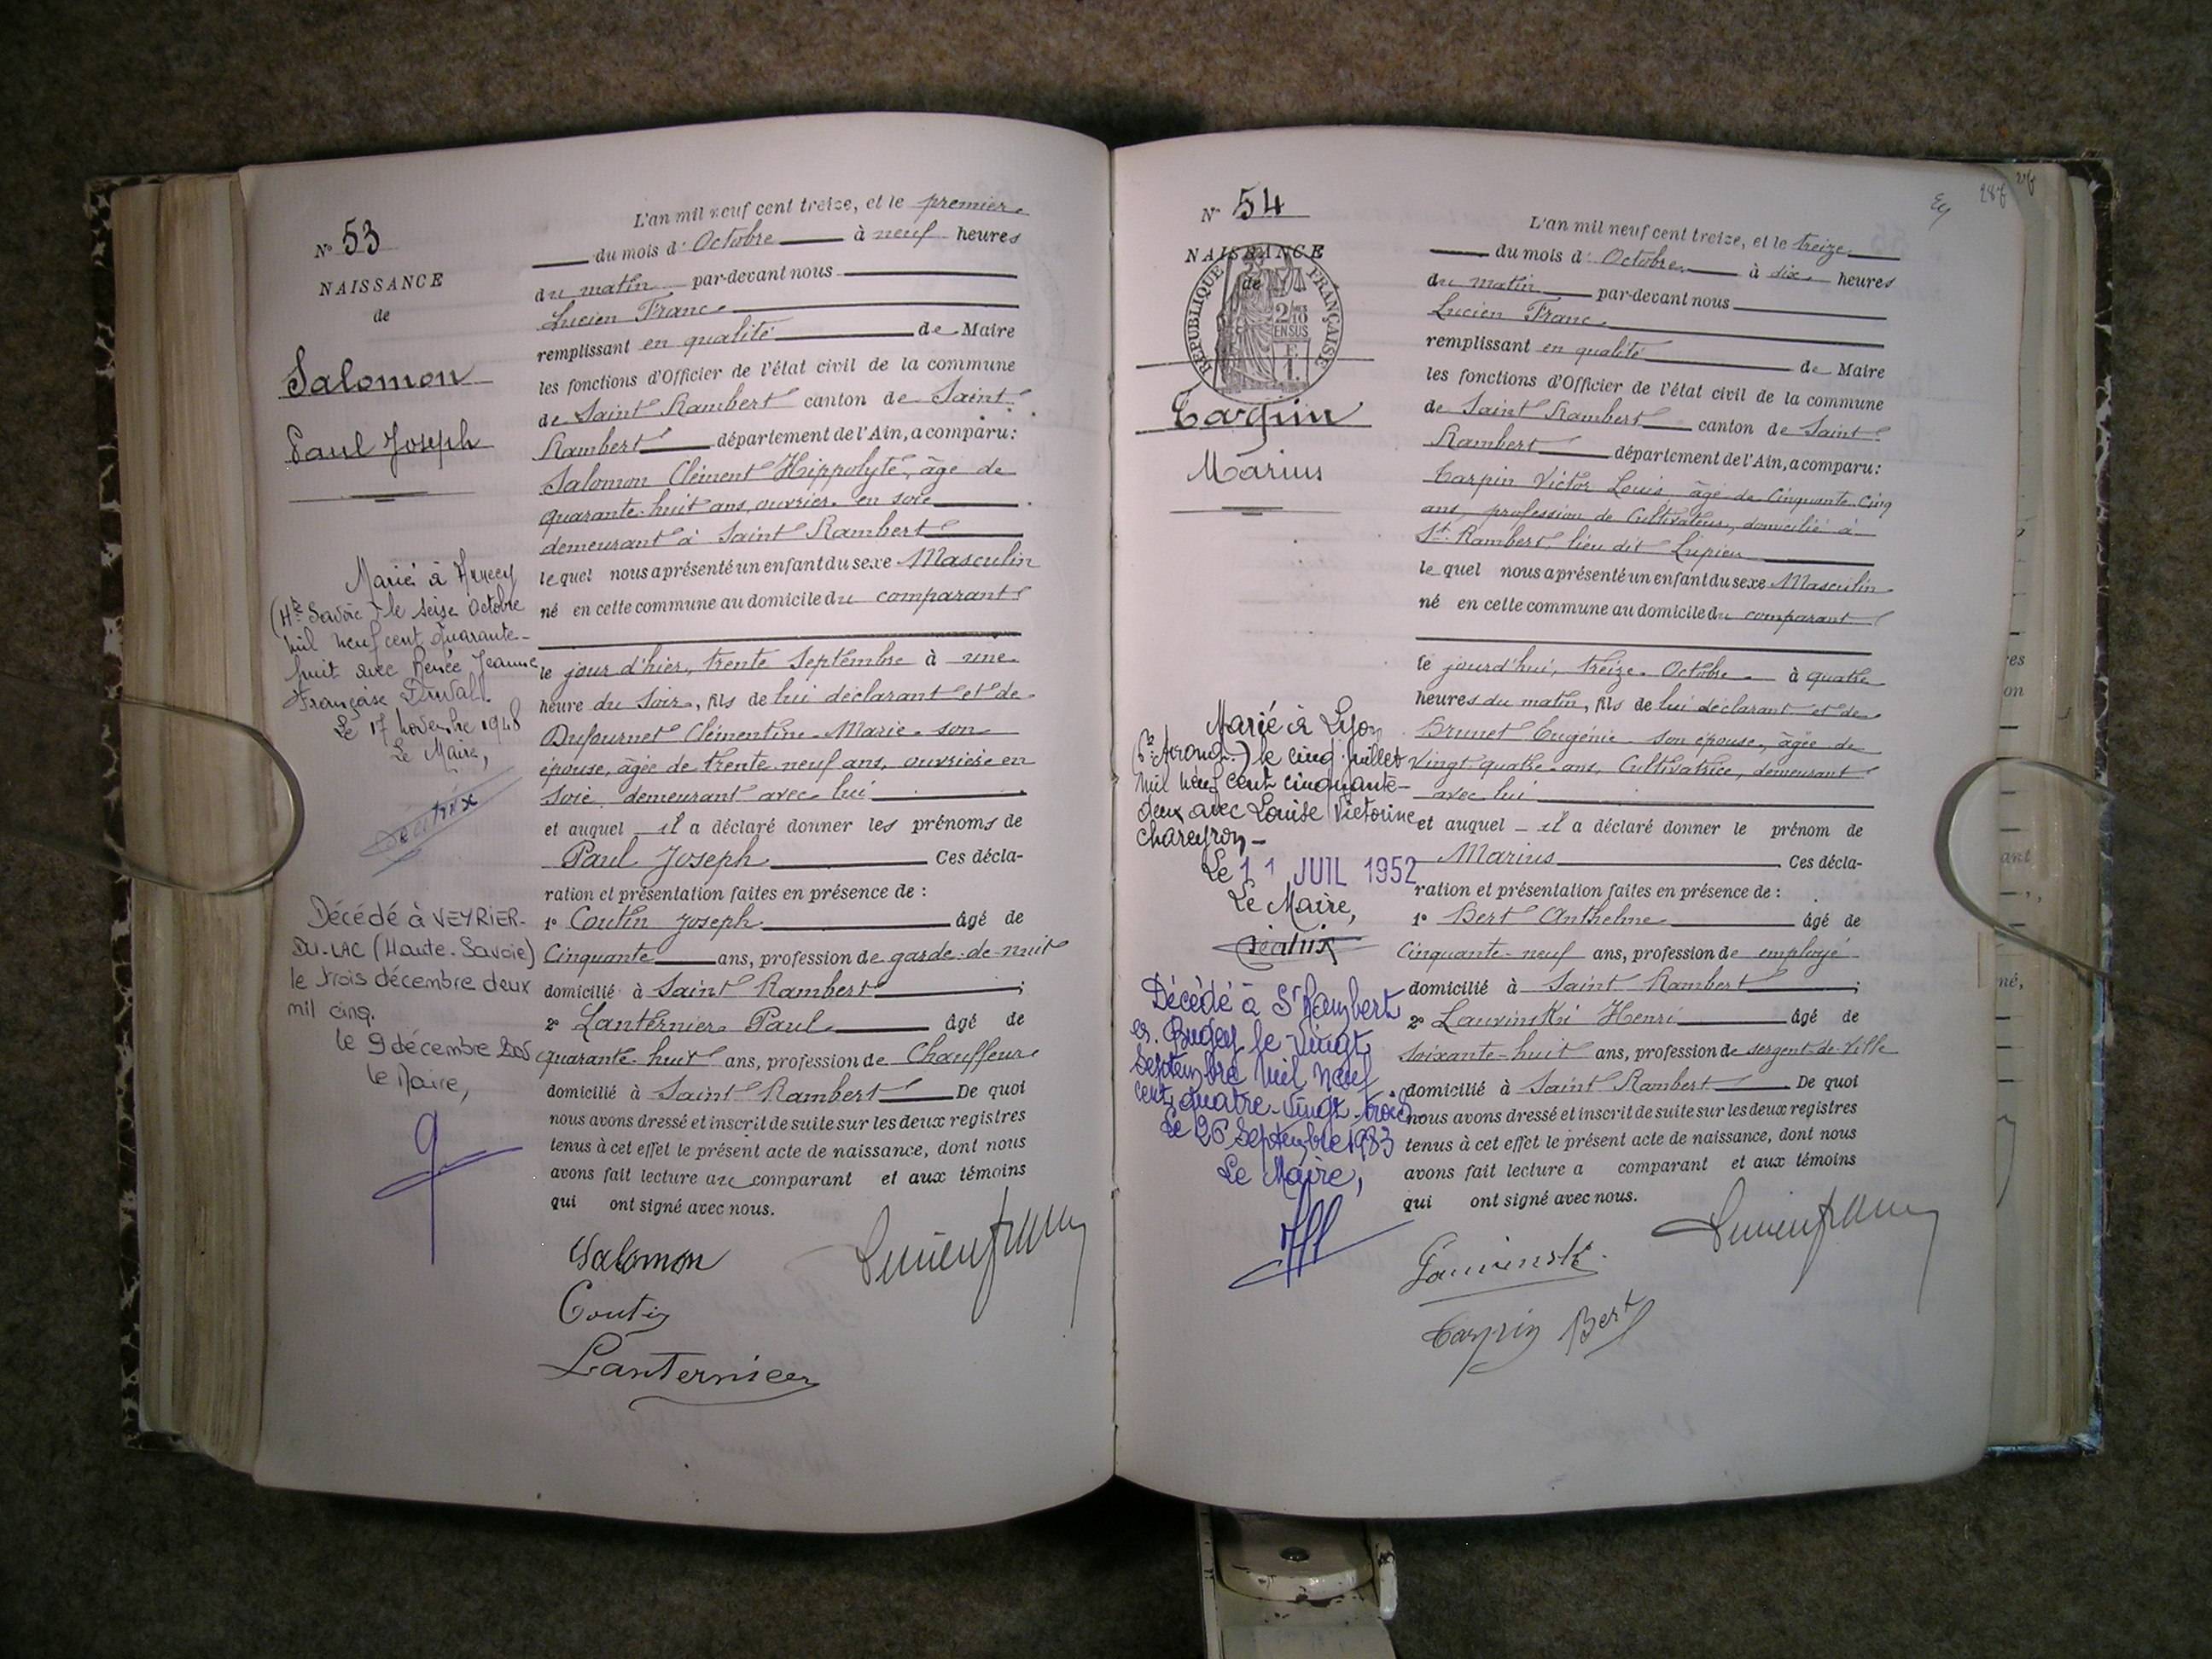 N° 53
NAISSANCE
de
Salomon
Paul Joseph
Marié à Annecy
(Hte Savoie) le seize Octobre
mil neuf cent quarante-
huit avec Renée Jeanne
Françoise Duval.
Le 17 novembre 1948
Le Maire,
Décédé à VEYRIER-
DU-LAC (Haute-Savoie)
le trois décembre deux
mil cinq.
le 9 décembre 2005
le Maire,
L'an mil neuf cent treize, et le premier
du mois d' Octobre à neuf heures
du matin par-devant nous
Lucien Franc
remplissant en qualité de Maire
les fonctions d'Officier de l'état civil de la commune
de Saint Rambert canton de Saint
Rambert département de l'Ain, a comparu:
Salomon Clément Hippolyte, âgé de
quarante-huit ans, ouvrier en soie
demeurant à Saint Rambert
lequel nous a présenté un enfant du sexe Masculin
né en cette commune au domicile du comparant
le jour d'hier, trente Septembre à une
heure du soir, fils de lui déclarant et de
Dufournet Clémentine Marie son
épouse, âgée de trente-neuf ans, ouvrière en
soie, demeurant avec lui
et auquel il a déclaré donner les prénoms de
Paul Joseph Ces décla-
ration et présentation faites en présence de :
1° Coutin Joseph âgé de
Cinquante ans, profession de garde-de-nuit
domicilié à Saint Rambert ;
2° Lanternier Paul âgé de
quarante-huit ans, profession de Chauffeur
domicilié à Saint Rambert De quoi
nous avons dressé et inscrit de suite sur les deux registres
tenus à cet effet le présent acte de naissance, dont nous
avons fait lecture au comparant et aux témoins
qui ont signé avec nous.
Salomon
Lucien Franc
Coutin
Lanternier
N° 54
NAISSANCE
de
REPUBLIQUE FRANÇAISE
2/10
EN SUS
Tarpin
Marius
Marié à Lyon
le cinq juillet
mil neuf cent cinquante-
deux avec Louise Victorine
Chareyron-
Le 11 JUIL 1952
Le Maire,
Décédé à St Rambert
en Bugey le vingt
septembre mil neuf
cent quatre-vingt-trois
Le 26 Septembre 1983
Le Maire,
L'an mil neuf cent treize, et le treize
du mois d' Octobre à dix heures
du matin par-devant nous
Lucien Franc
remplissant en qualité de Maire
les fonctions d'Officier de l'état civil de la commune
de Saint Rambert canton de Saint
Rambert département de l'Ain, a comparu:
Tarpin Victor Louis âgé de Cinquante-Cinq
ans, profession de Cultivateur, domicilié à
St Rambert, lieu dit Lupieu
lequel nous a présenté un enfant du sexe Masculin
né en cette commune au domicile du comparant
le jourd'hui, treize Octobre à quatre
heures du matin, fils de lui déclarant et de
Brunet Eugénie son épouse, âgée de
Vingt-quatre ans, Cultivatrice, demeurant
avec lui
et auquel il a déclaré donner le prénom de
Marius Ces décla-
ration et présentation faites en présence de :
1° Bert Anthelme âgé de
Cinquante-neuf ans, profession de employé
domicilié à Saint Rambert ;
2° Lauvinski Henri âgé de
soixante-huit ans, profession de sergent-de-Ville
domicilié à Saint Rambert De quoi
nous avons dressé et inscrit de suite sur les deux registres
tenus à cet effet le présent acte de naissance, dont nous
avons fait lecture a comparant et aux témoins
qui ont signé avec nous.
Lucien Franc
Tarpin Bert